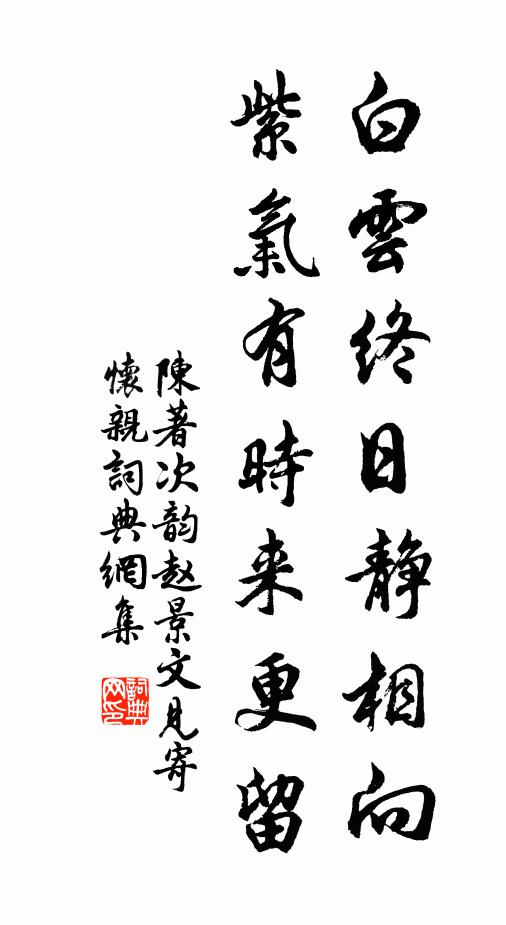 白雲終日静相向
紫氣有時来更留
陳著次韵赵景文見寄
懷親詞典網集
詞典网印